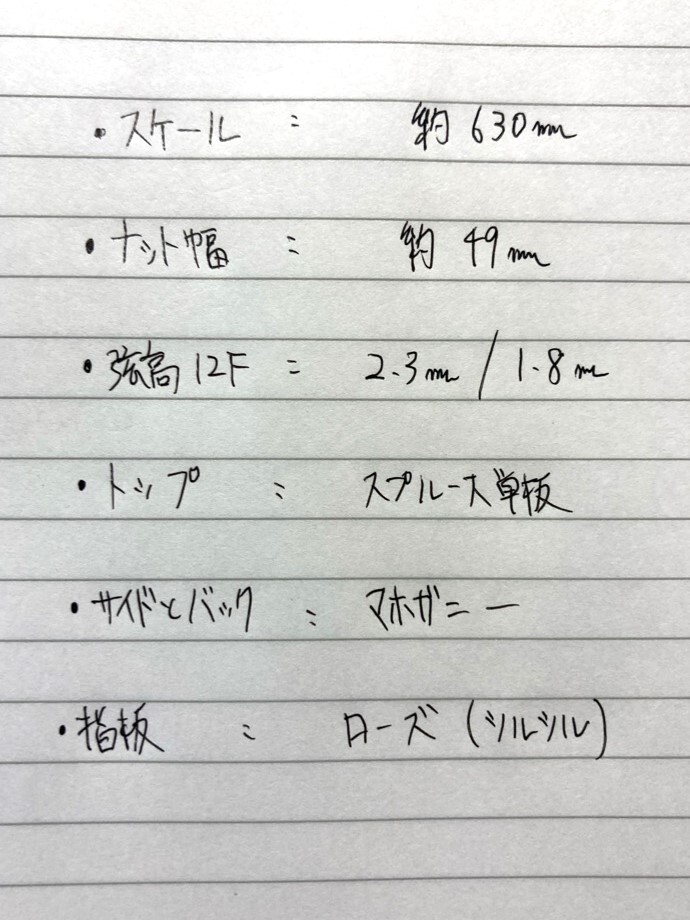 ・スケール : 約 630mm
・ナット幅 : 約 49mm
・弦高 12F : 2.3mm / 1.8mm
・トップ : スプルース単板
・サイドとバック : マホガニー
・指板 : ローズ (ツルツル)